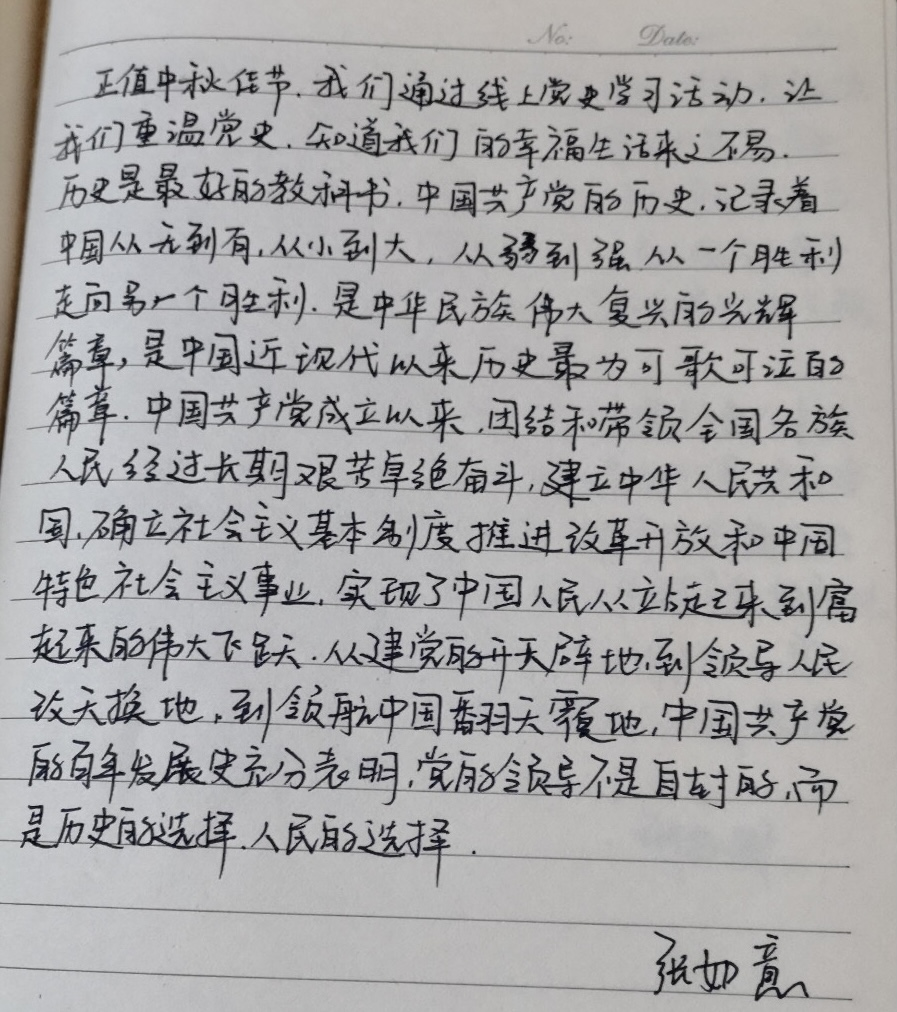 No:    Date:
正值中秋佳节.我们通过线上党史学习活动.让
我们重温党史.知道我们的幸福生活来之不易.
历史是最好的教科书.中国共产党的历史.记录着
中国从无到有,从小到大,从弱到强从一个胜利
走向另一个胜利.是中华民族伟大复兴的光辉
篇章,是中国近现代以来历史最为可歌可泣的
篇章.中国共产党成立以来.团结和带领全国各族
人民经过长期艰苦卓绝奋斗,建立中华人民共和
国.确立社会主义基本制度推进改革开放和中国
特色社会主义事业.实现了中国人民从站起来到富
起来的伟大飞跃.从建党的开天辟地.到领导人民
改天换地,到领航中国翻天覆地,中国共产党
的百年发展史充分表明,党的领导不是自封的,而
是历史的选择.人民的选择.
张如意